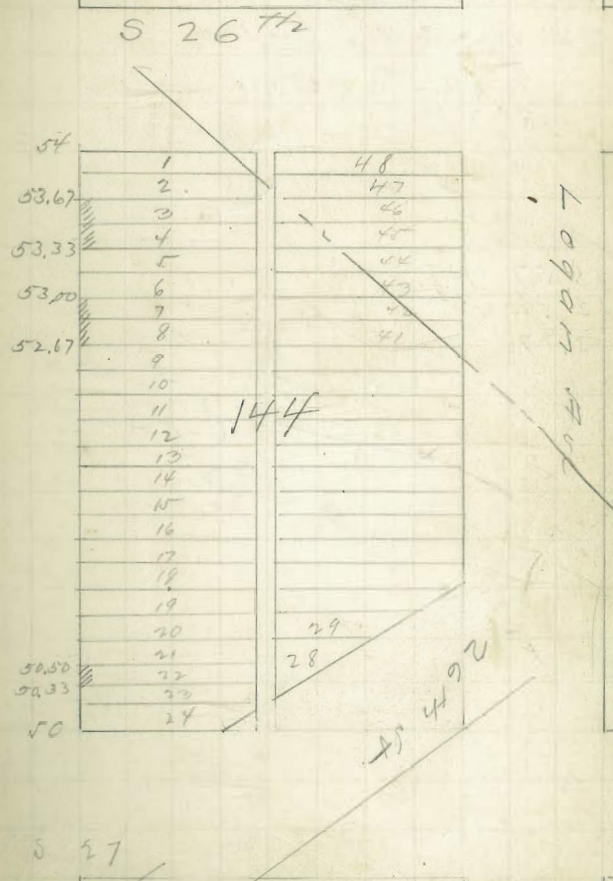 S 26 th
54
53.67
53.33
53,00
52.67
50.50
50.33
50
1
2
3
4
5
6
7
8
9
10
11
12
13
14
15
16
17
18
19
20
21
22
23
24
144
48
47
46
45
44
43
42
41
29
28
Logan Av
26th St
S 27